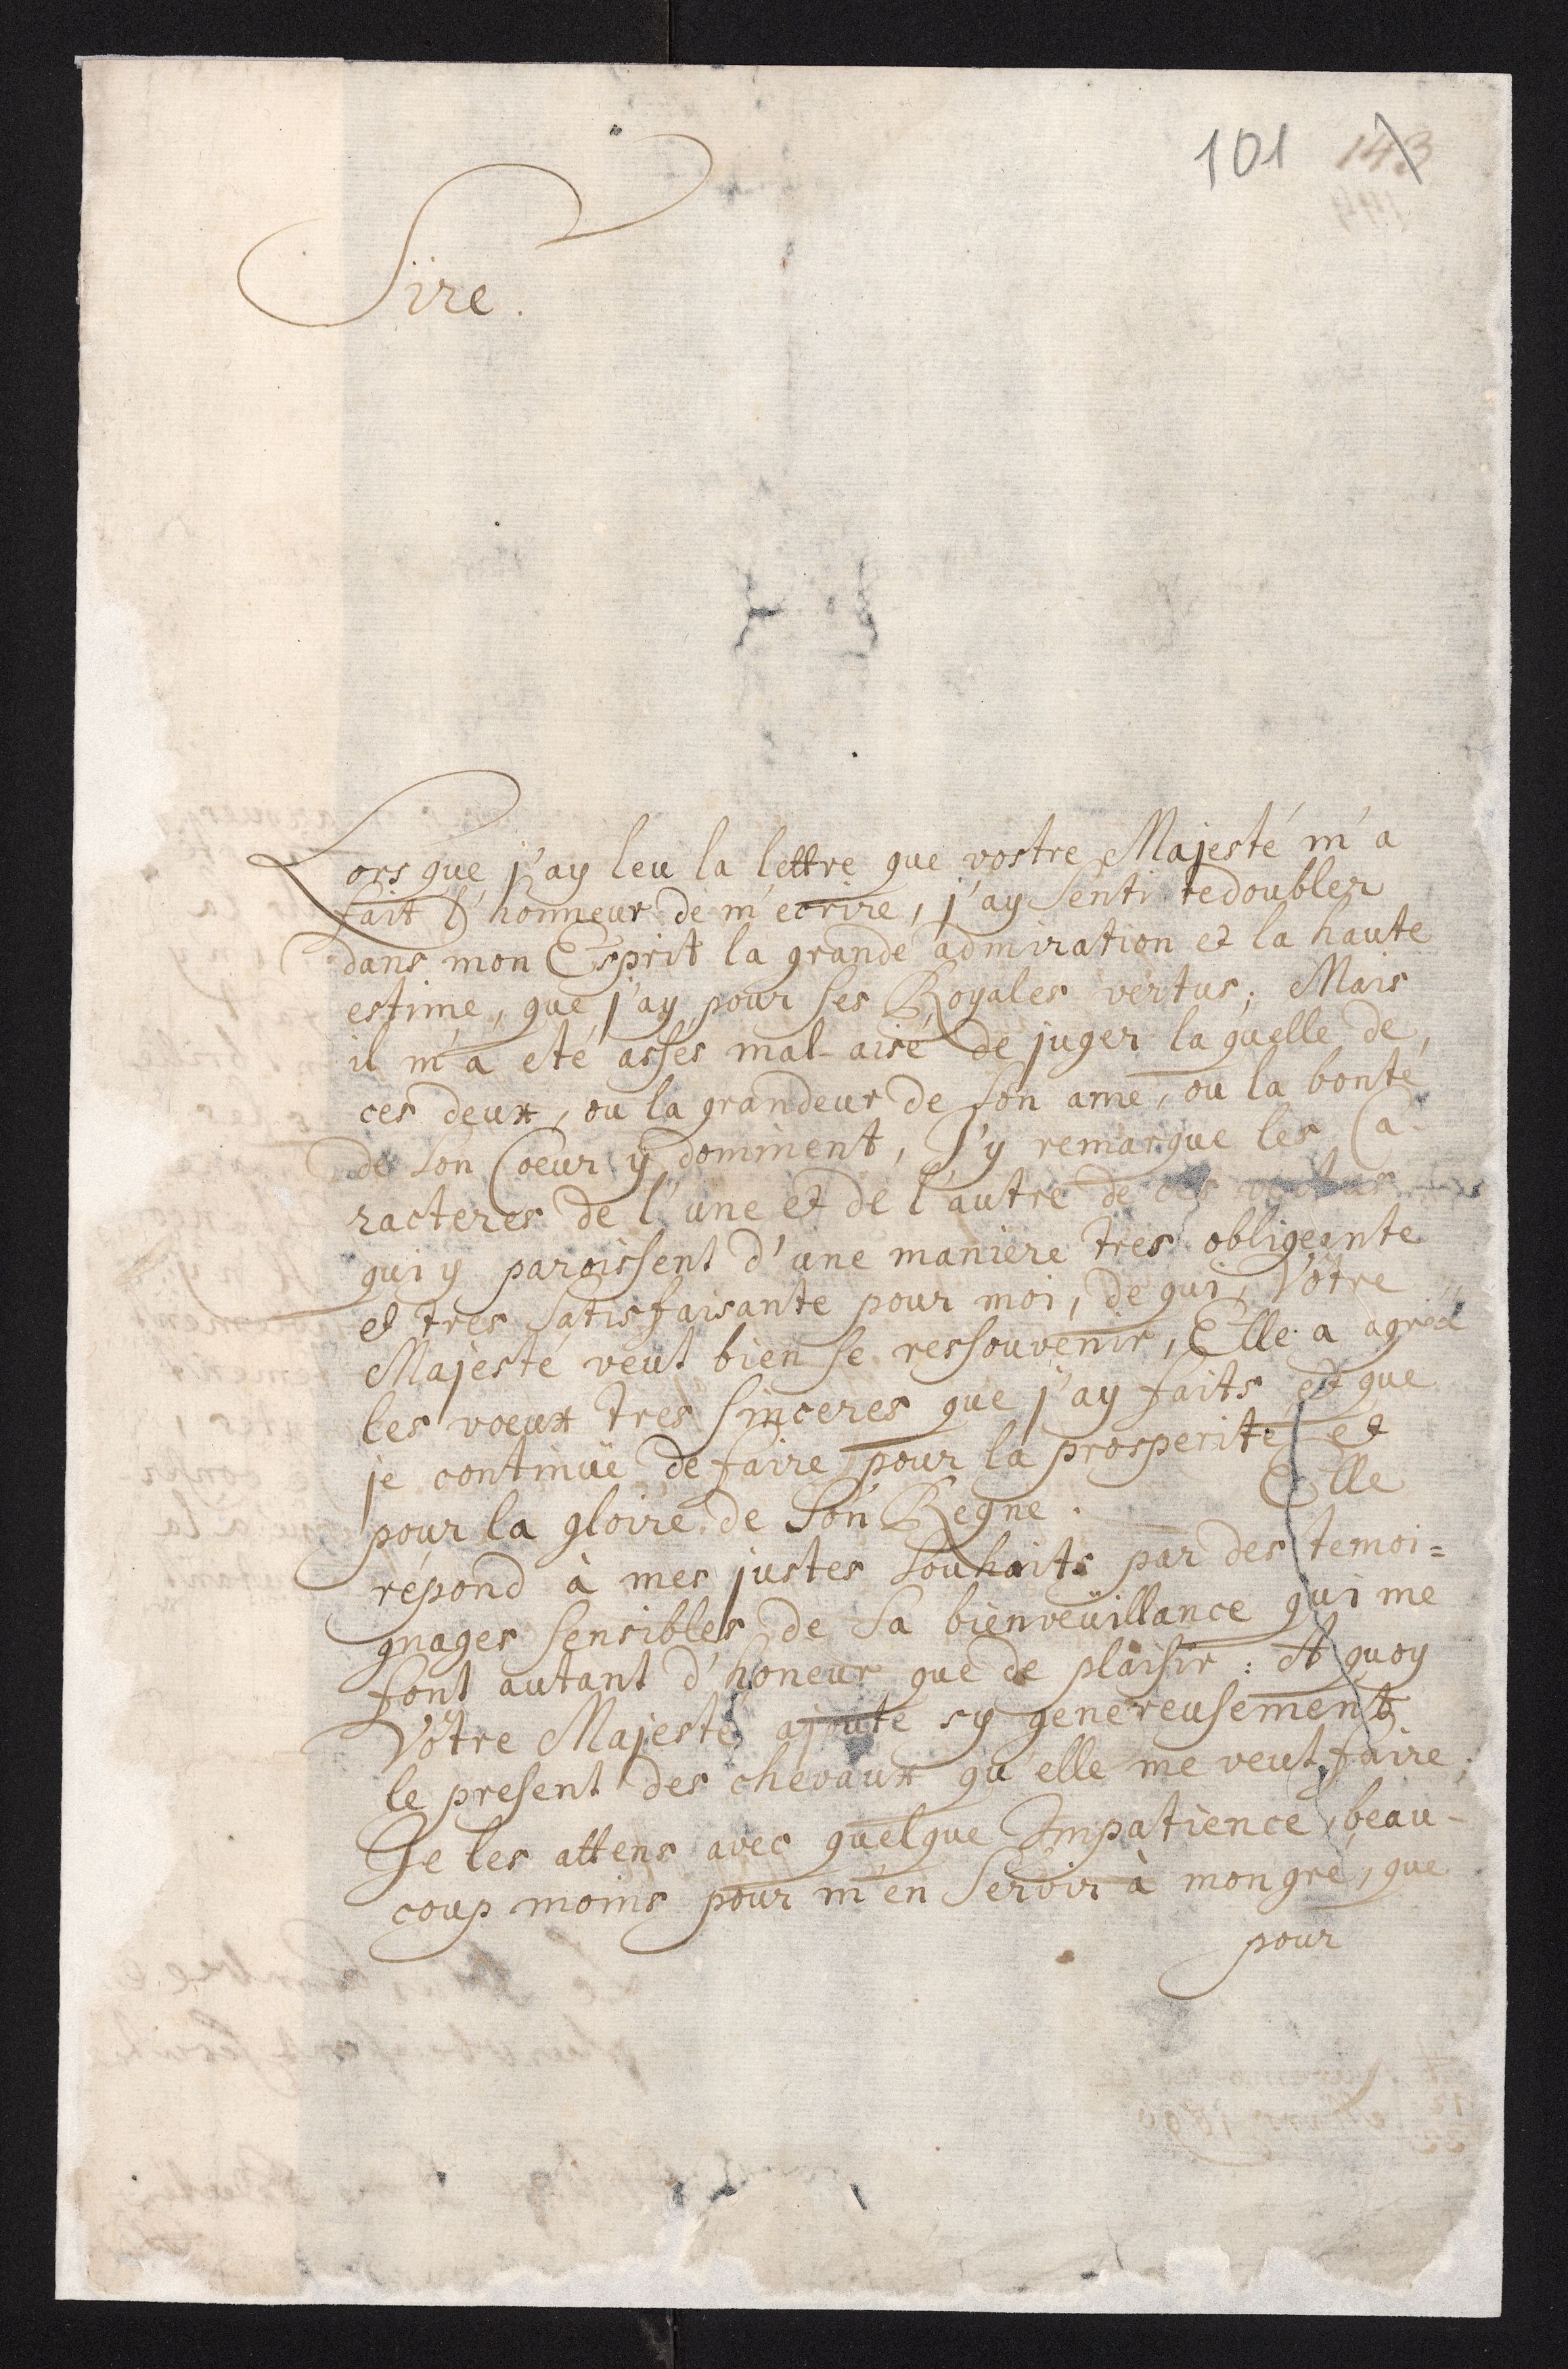 101 143
Sire.
Lors que j'ay leu la lettre que vostre Majesté m'a
fait l'honneur de m'ecrire, j'ay senti redoubler
dans mon Esprit la grande admiration et la haute
estime, que j'ay pour ses Royales vertus; Mais
il m'a eté assés mal-aisé de juger laquelle de,
ces deux, ou la grandeur de son ame, ou la bonté
de son Coeur y dominent, J'y remarque les Ca-
racteres de l'une et de l'autre de ces vertus
qui y paroissent d'une maniere tres obligeante
et tres satisfaisante pour moi, de qui, Vôtre
Majesté veut bien se ressouvenir, Elle a agreé
les voeux tres sinceres que j'ay faits et que
je continüe de faire pour la prosperite et
pour la gloire de Son Regne. Elle
répond à mes justes souhaits par des temoi=
gnages sensibles de sa bienveüillance qui me
font autant d'honeur que de plaisir: A quoy
Vôtre Majesté ajoute sy genereusement
le present des chevaux qu'elle me veut faire;
Je les attens avec quelque Impatience, beau-
coup moins pour m'en servir à mon gré, que
pour